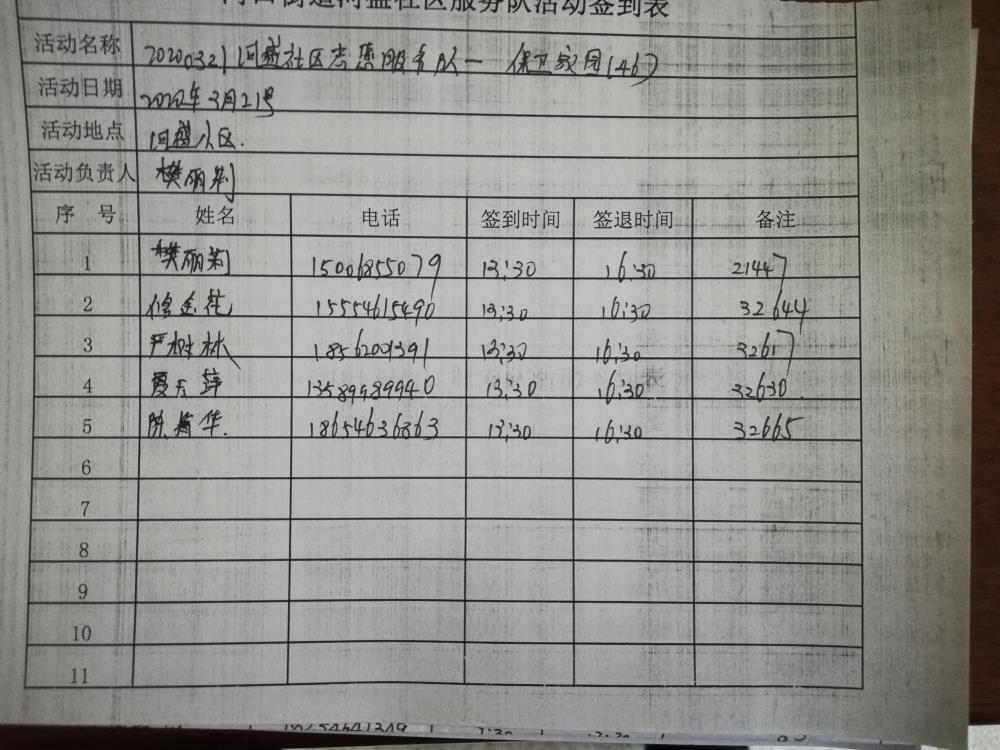 河口街道河盛社区服务队活动签到表
活动名称 20200321河盛社区志愿服务队一 保卫家园(46)
活动日期 2020年3月21号
活动地点 河盛小区.
活动负责人 樊丽荆
序 号 姓名 电话 签到时间 签退时间 备注
1 樊丽荆 15006855079 13:30 16:30 21447
2 15554615490 13:30 16:30 32644
3 严树林 18562001391 13:30 16:30 32617
4 13589989940 13:30 16:30 32630.
5 华. 18654636863 13:30 16:30 32665
6
7
8
9
10
11